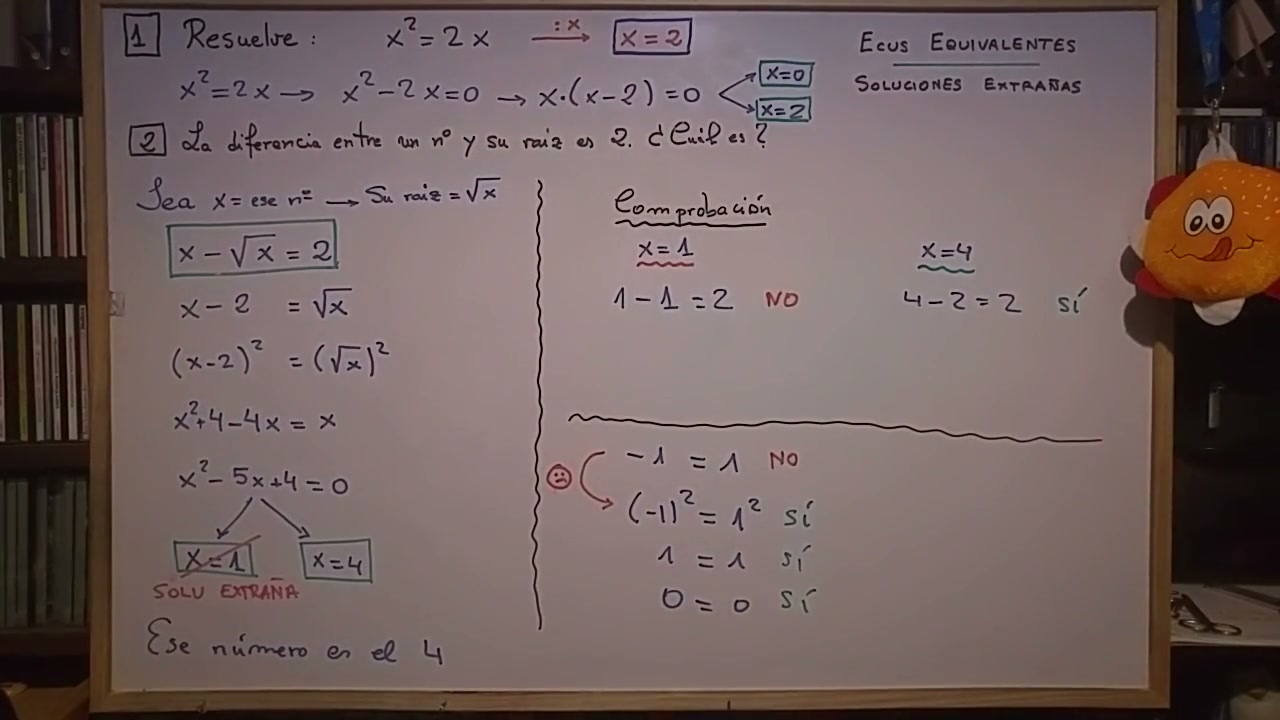 1 Resuelve: x² = 2x :x → x = 2
x² = 2x → x² - 2x = 0 → x·(x-2) = 0 x=0
x=2
ECUS EQUIVALENTES
SOLUCIONES EXTRAÑAS
2 La diferencia entre un nº y su raiz es 2. ¿Cuál es?
Sea x = ese nº → Su raiz = √x
x - √x = 2
x - 2 = √x
(x-2)² = (√x)²
x²+4-4x = x
x² - 5x+4 = 0
x=1 x=4
SOLU EXTRAÑA
Ese número es el 4
Comprobación
x=1
1 - 1 = 2 NO
x=4
4 - 2 = 2 SÍ
-1 = 1 NO
(-1)² = 1² SÍ
1 = 1 SÍ
0 = 0 SÍ